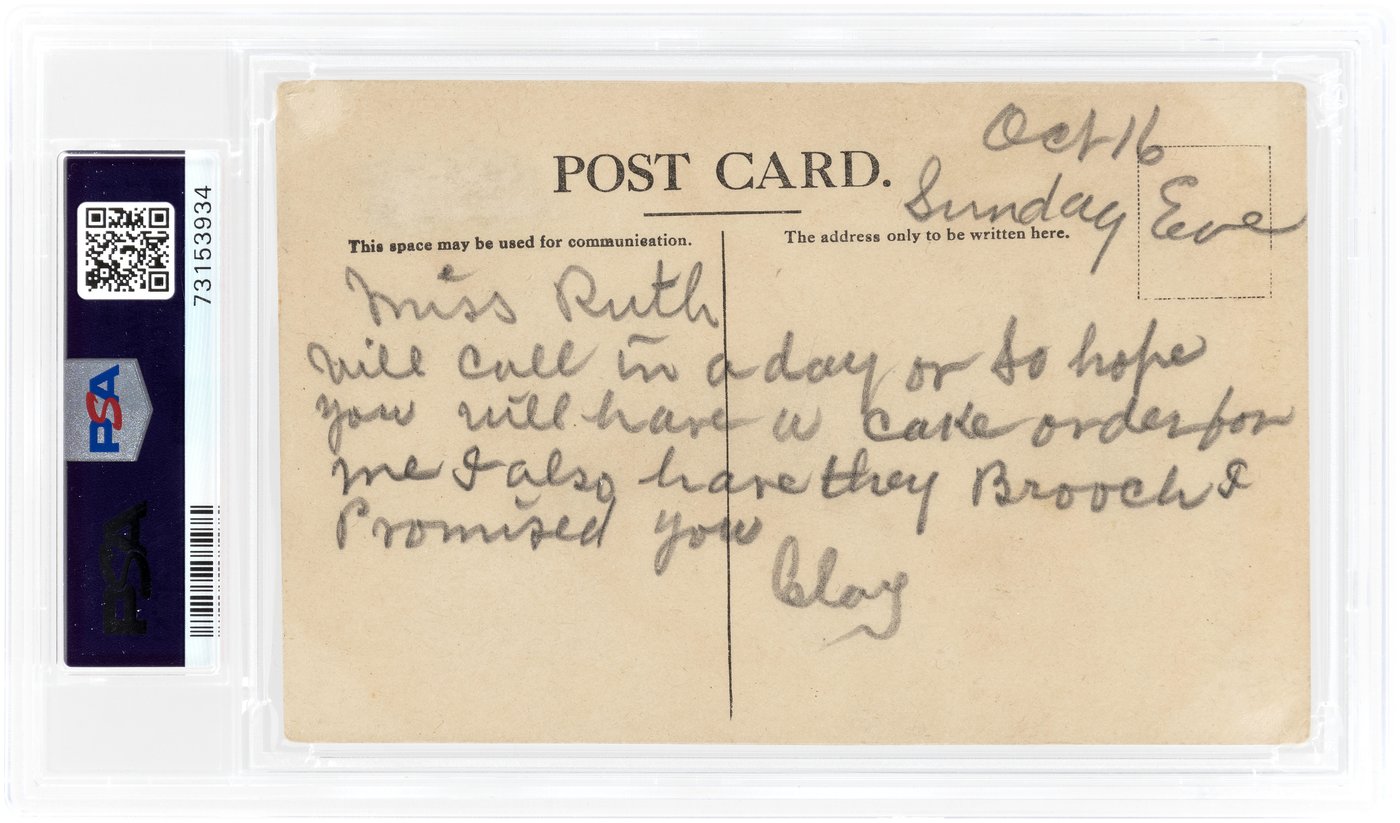 Oct 16
Sunday Eve
POST CARD.
This space may be used for communication.
The address only to be written here.
Miss Ruth
will call in a day or so hope
you will have a cake order for
me I also have they Brooch I
Promised you
Clay
73153934
PSA
PSA